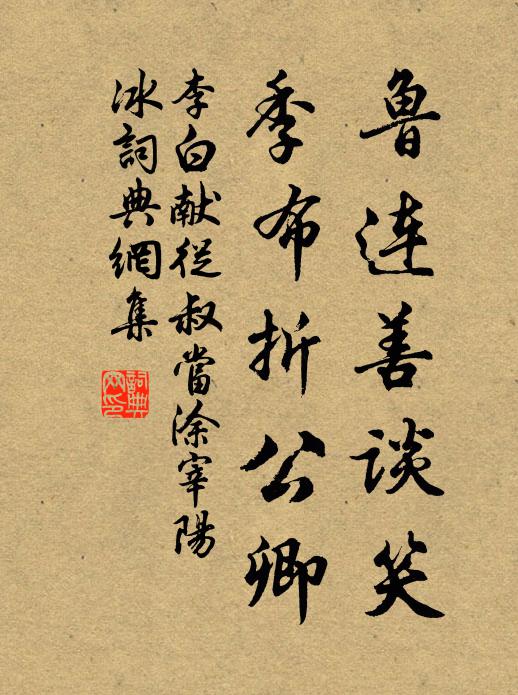 鲁连善谈笑
季布折公卿
李白献從叔當涂宰陽
冰詞典網集
詞典網印